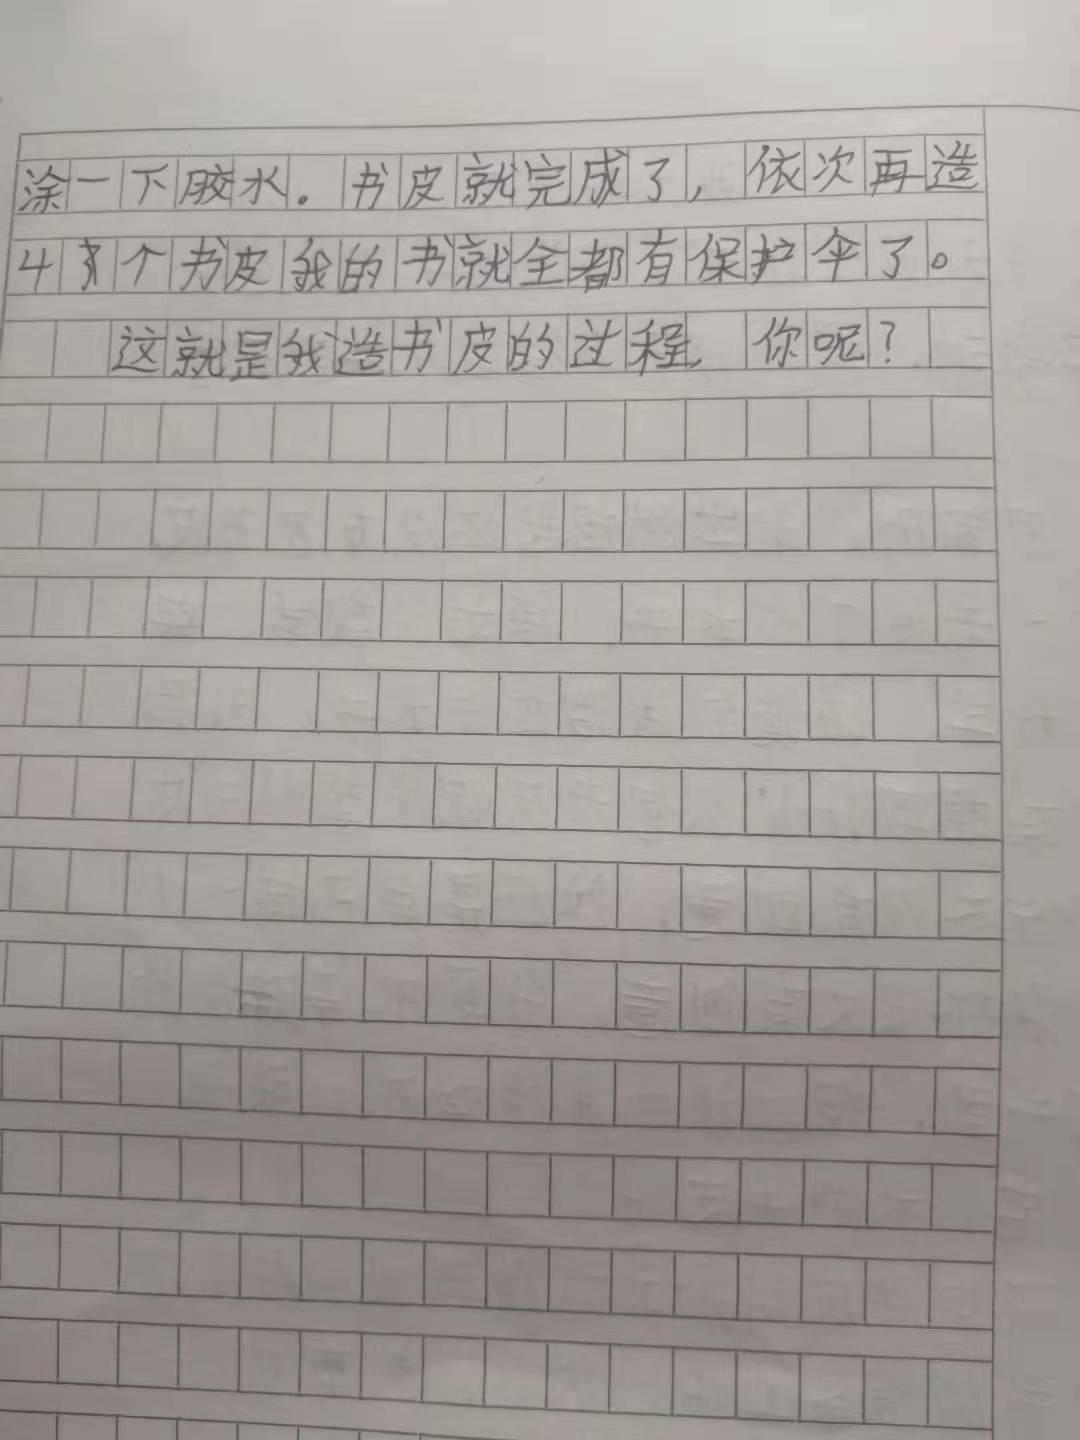 涂一下胶水。书皮就完成了，依次再造
4个书皮我的书就全都有保护伞了。
这就是我造书皮的过程，你呢？